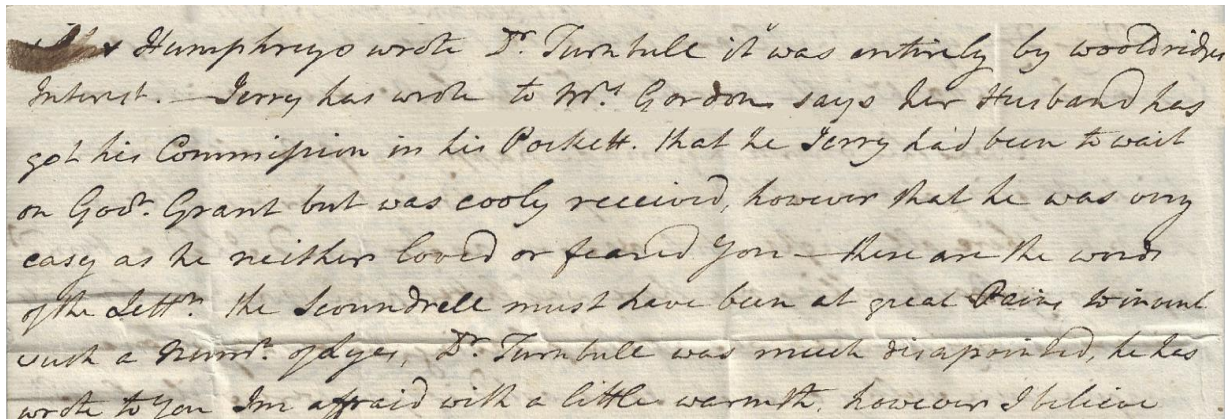 Humphreys wrote Dr. Turnbull it was entirely by wooldridges
Interest. — Jerry has wrote to Mrs. Gordon says her Husband has
got his Commission in his Pockett. that he Jerry had been to wait
on Govr. Grant but was cooly received, however that he was very
easy as he neither loved or feared You — these are the words
of the Lettr. the Scoundrell must have been at great Pains to invent
such a Numr. of Lyes, Dr. Turnbull was much disapointed, he has
wrote to You Im affraid with a little warmth, however I believe